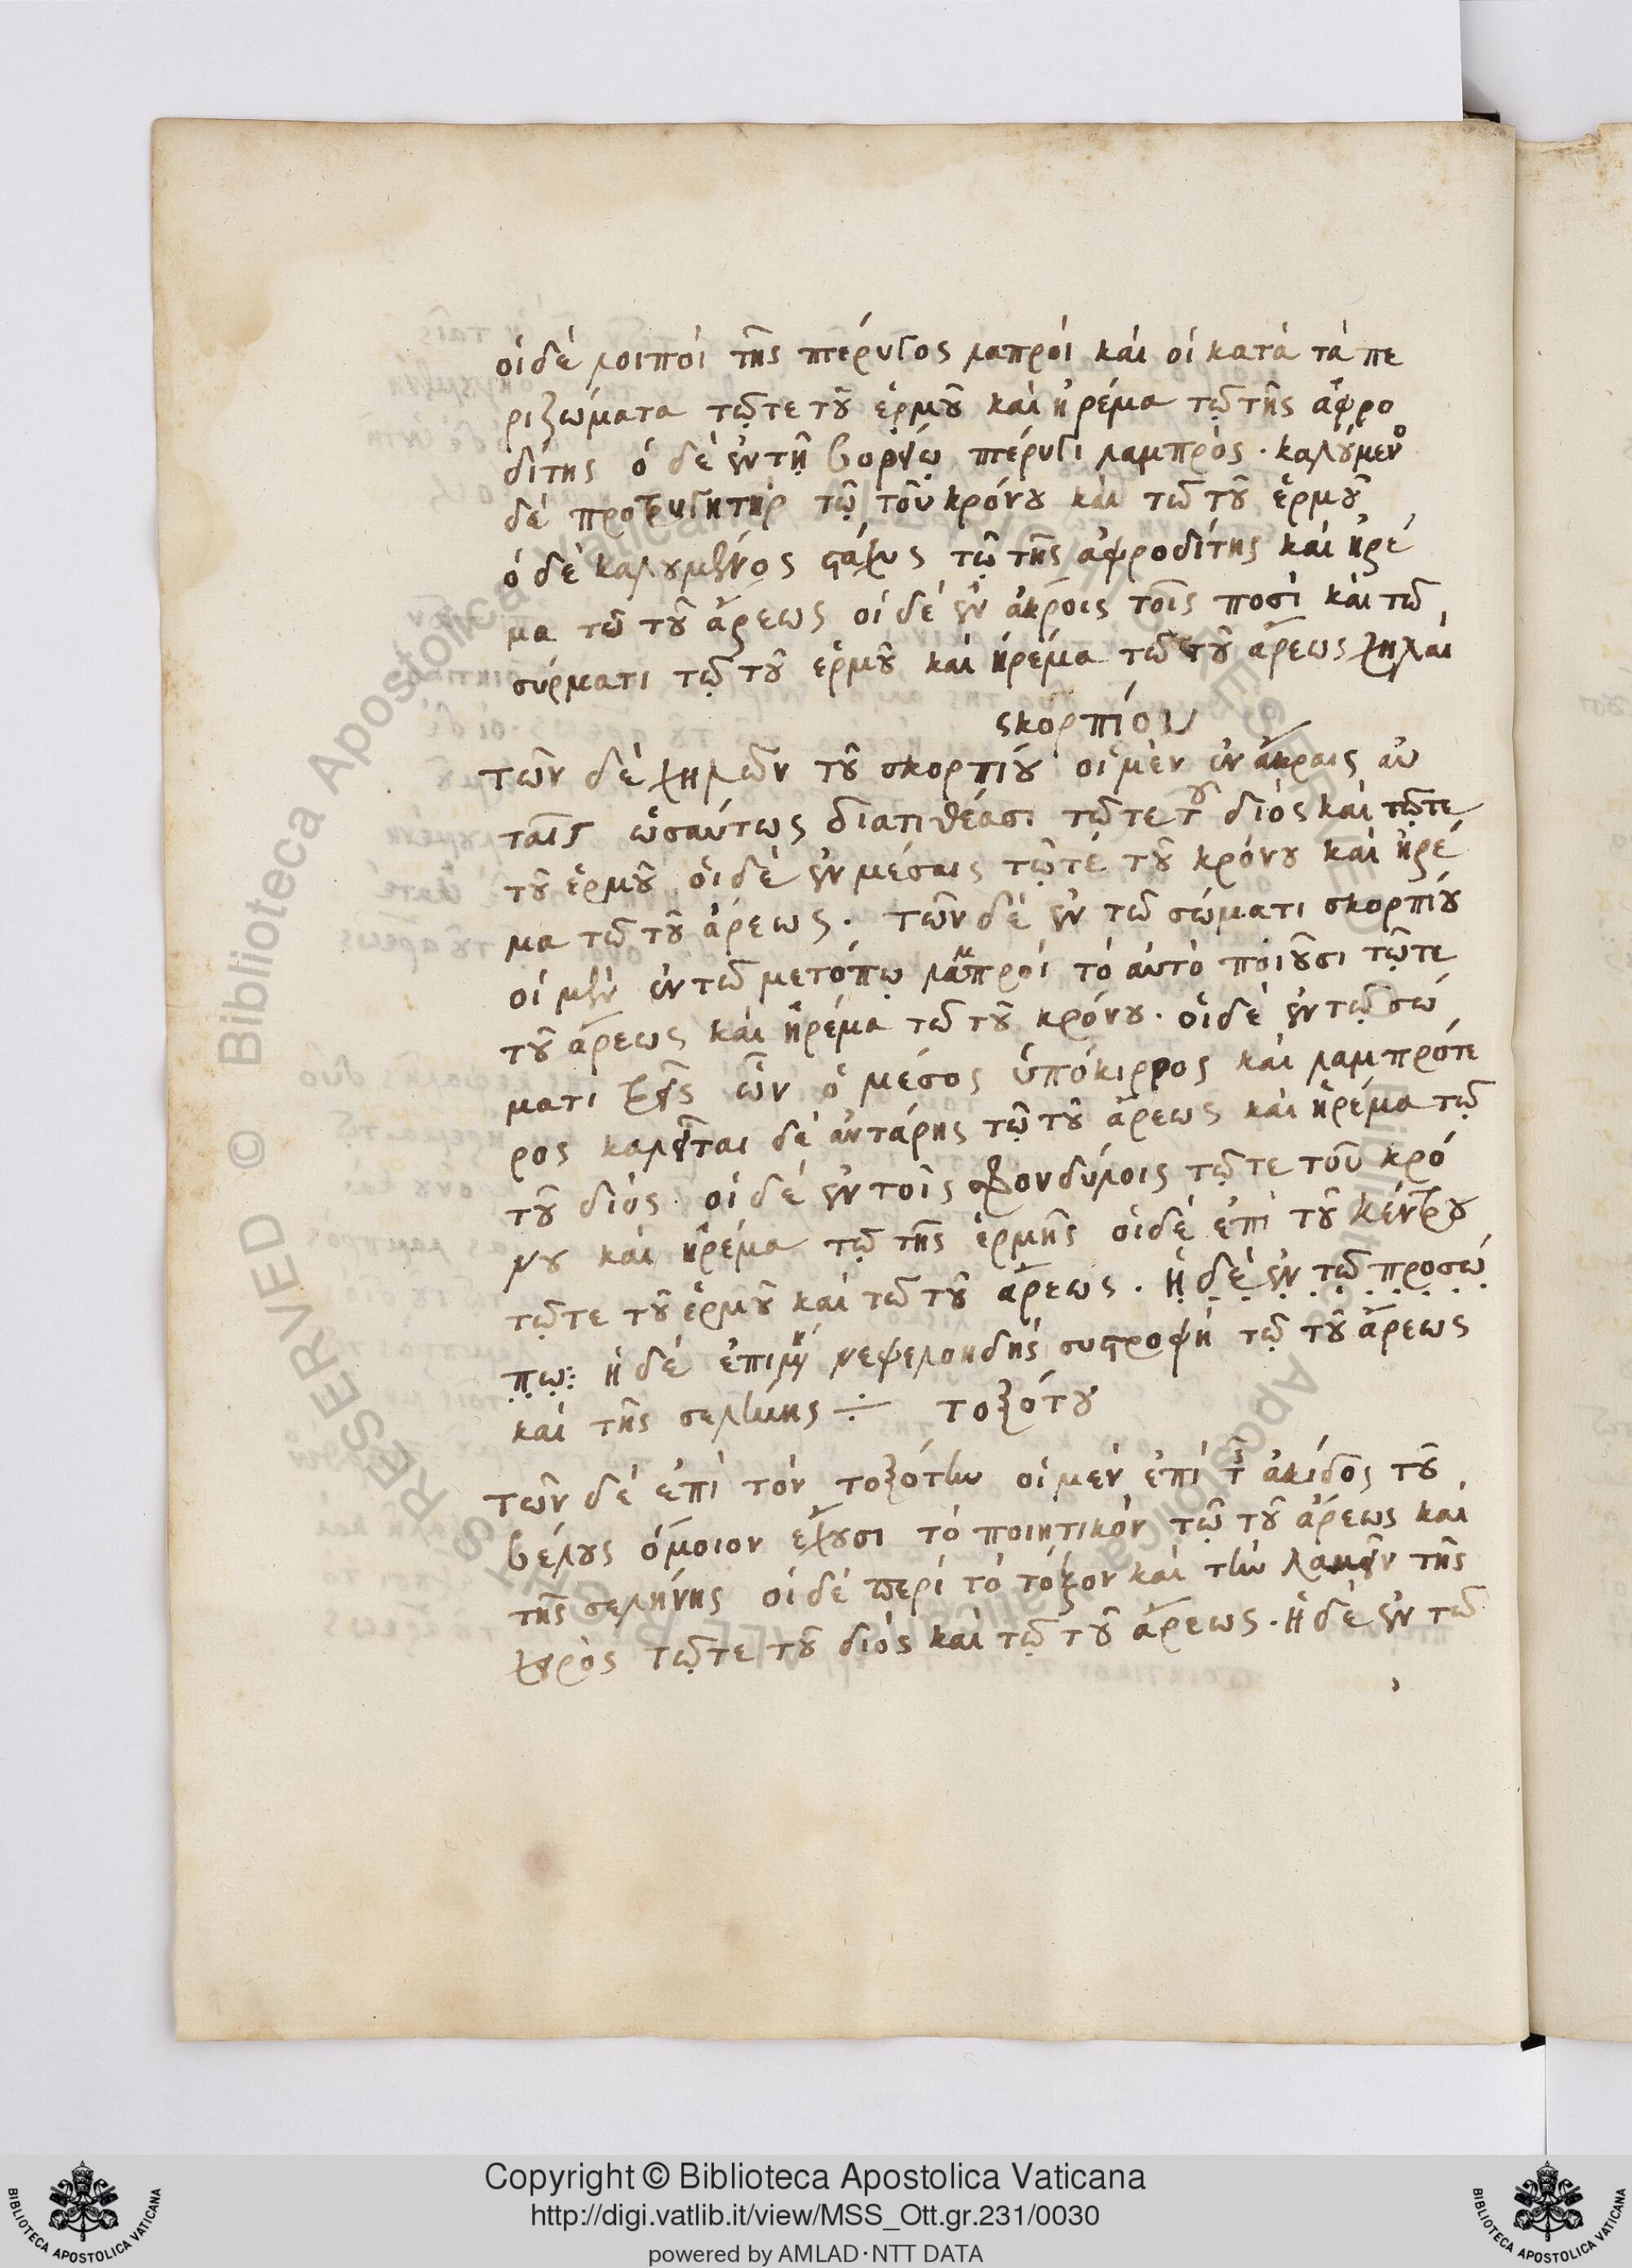 οἱ δὲ λοιποὶ τῆς πτέρυγος λαπροὶ καὶ οἱ κατὰ τὰ πε
ριζώματα τῷ τε τοῦ ἑρμοῦ καὶ ἠρέμα τῷ τῆς ἀφρο
δίτης ὁ δὲ ἐν τῇ βορείῳ πτέρυγι λαμπρὸς · καλούμενο
δὲ προτρυγητὴρ τῷ τοῦ κρόνου καὶ τῶ τοῦ ἑρμοῦ
ὁ δὲ καλουμένος στάχυς τῷ τῆς ἀφροδίτης καὶ ἠρέ
μα τῶ τοῦ ἄρεως οἱ δὲ ἐν ἄκροις τοῖς ποσὶ καὶ τῶ
σύρματι τῷ τοῦ ἑρμοῦ καὶ ἠρέμα τῶ τοῦ ἄρεως χηλαὶ
σκορπίου
τῶν δὲ χηλῶν τοῦ σκορπίου οἱ μὲν ἐν ἄκραις αὐ
ταῖς ὡσαύτως διατιθέασι τῶ τε τοῦ διὸς καὶ τῷ τε
τοῦ ἑρμοῦ οἱ δὲ ἐν μέσαις τῷ τε τοῦ κρόνου καὶ ἠρέ
μα τῶ τοῦ ἄρεως · τῶν δὲ ἐν τῶ σώματι σκορπίου
οἱ μὲν ἐν τῶ μετόπῳ λαμπροὶ τὸ αὐτὸ ποιοῦσι τῷ τε
τοῦ ἄρεως καὶ ἠρέμα τῶ τοῦ κρόνου · οἱ δὲ ἐν τῷ σώ
ματι τρεῖς ὧν ὁ μέσος ὑπόκιρρος καὶ λαμπρότε
ρος καλεῖται δὲ ἀντάρης τῷ τοῦ ἄρεως καὶ ἠρέμα τῷ
τοῦ διὸς · οἱ δὲ ἐν τοῖς σφονδύλοις τῷ τε τοῦ κρό
νου καὶ ἠρέμα τῷ τῆς ἑρμῆς οἱ δὲ ἐπὶ τοῦ κέντρου
τῷ τε τοῦ ἑρμοῦ καὶ τῶ τοῦ ἄρεως · ἡ δὲ ἐν τῷ προσώ
πῳ : ἡ δὲ νεφελοηδὴς συστροφὴ τῷ τοῦ ἄρεως
καὶ τῆς σελήνης ÷ τοξότου
τῶν δὲ ἐπὶ τὸν τοξότην οἱ μὲν ἐπὶ τῆς ἀκίδος τοῦ
βέλους ὅμοιον ἔχουσι τὸ ποιητικὸν τῷ τοῦ ἄρεως καὶ
τῆς σελήνης οἱ δὲ περὶ τὸ τόξον καὶ τὴν τῆς
χειρὸς τῷ τε τοῦ διὸς καὶ τῷ τοῦ ἄρεως · ἡ δὲ ἐν τῶ
Biblioteca Apostolica Vaticana
© Biblioteca Apostolica Vaticana
Copyright © Biblioteca Apostolica Vaticana
http://digi.vatlib.it/view/MSS_Ott.gr.231/0030
powered by AMLAD·NTT DATA
BIBLIOTECA APOSTOLICA VATICANA
BIBLIOTECA APOSTOLICA VATICANA